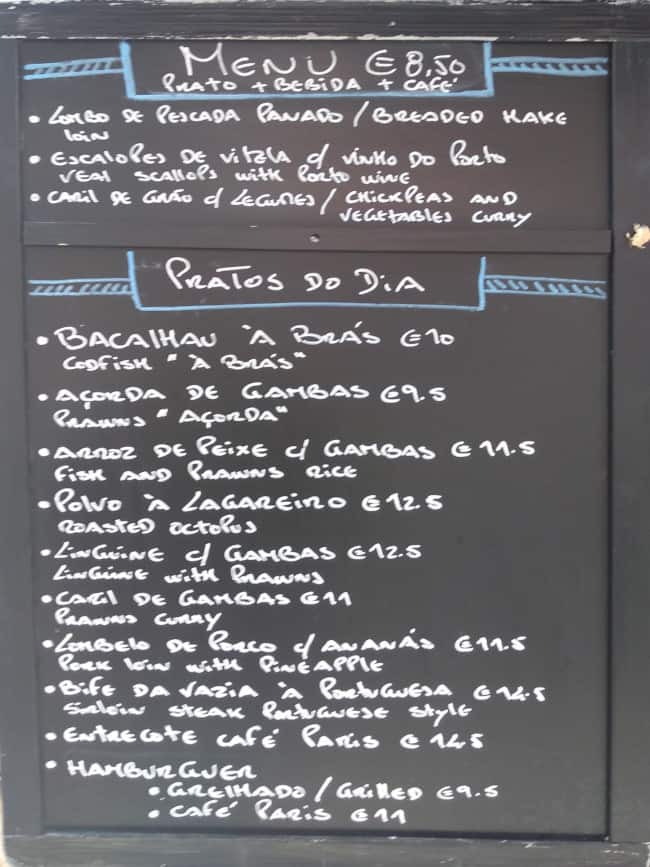 MENU € 8,50
PRATO + BEBIDA + CAFÉ
• LOMBO DE PESCADA PANADO / BREADED HAKE
LOIN
• ESCALOPES DE VITELA C/ VINHO DO PORTO
VEAL SCALLOPS WITH PORTO WINE
• CARIL DE GRÃO C/ LEGUMES / CHICKPEAS AND
VEGETABLES CURRY
PRATOS DO DIA
• BACALHAU À BRÁS €10
CODFISH "À BRÁS"
• AÇORDA DE GAMBAS €9.5
PRAWNS "AÇORDA"
• ARROZ DE PEIXE C/ GAMBAS € 11.5
FISH AND PRAWNS RICE
• POLVO À LAGAREIRO €12.5
ROASTED OCTOPUS
• LINGÜINE C/ GAMBAS €12.5
LINGÜINE WITH PRAWNS
• CARIL DE GAMBAS €11
PRAWNS CURRY
• LOMBELO DE PORCO C/ ANANÁS €11.5
PORK LOIN WITH PINEAPPLE
• BIFE DA VAZIA À PORTUGUESA €14.5
SIRLOIN STEAK PORTUGUESE STYLE
• ENTRECOTE CAFÉ PARIS € 14.5
• HAMBURGUER
• GRELHADO / GRILLED €9.5
• CAFÉ PARIS €11